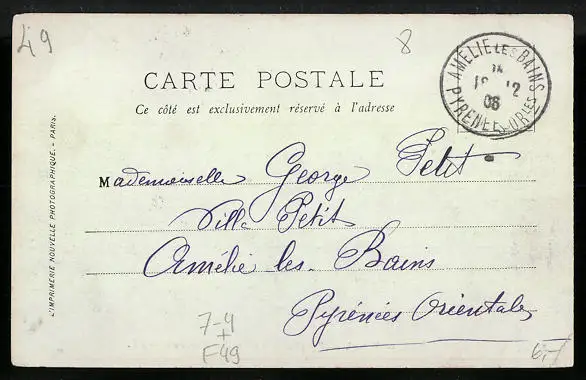 49
8
AMELIE LES BAINS
PYRENEES ORIES
CARTE POSTALE
Ce côté est exclusivement réservé à l'adresse
Mademoiselle George Petit
Villa Petit
Amélie les-Bains
Pyrénées Orientales
L'IMPRIMERIE NOUVELLE PHOTOGRAPHIQUE. - PARIS.
7-4
+
F49
6,-